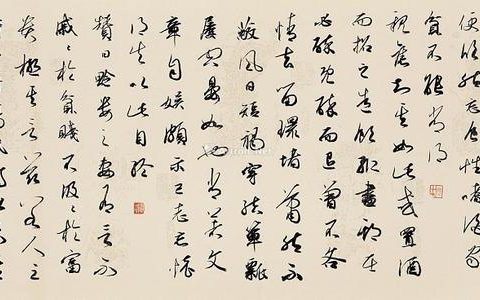 便欣然忘食性嗜酒家
貧不能常得
親舊知其如此或置酒
而招之造飲輒盡期在
必醉既醉而退曾不吝
情去留環堵蕭然不
蔽風日短褐穿結簞瓢
屢空晏如也常著文
章自娛頗示己志忘懷
得失以此自終
贊曰黔婁之妻有言不
戚戚於貧賤不汲汲於富
貴極其言茲若人之